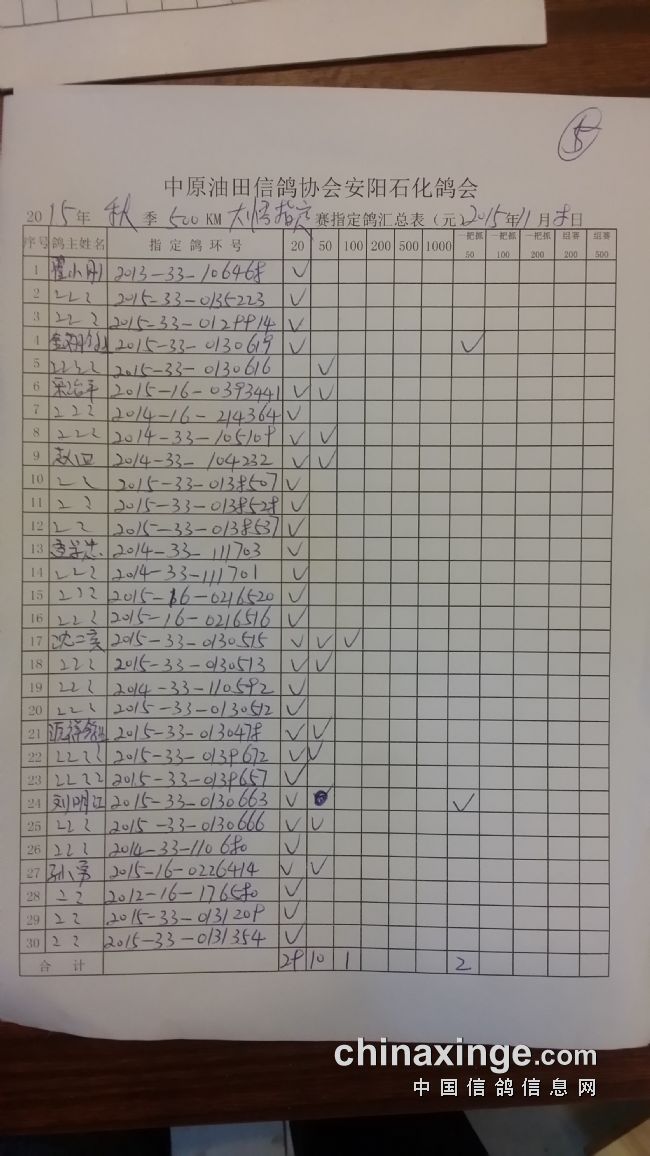 5
中原油田信鸽协会安阳石化鸽会
2015年 秋 季 500 KM 大悟指定 赛指定鸽汇总表（元）2015年11月8日
序号 鸽主姓名 指 定 鸽 环 号 20 50 100 200 500 1000 一把抓50 一把抓100 一把抓200 组赛200 组赛500
1 2013-33-106468 ✓
2 〻〻〻 2015-33-0135223 ✓
3 〻〻〻 2015-33-0129914 ✓
4 2015-33-0130619 ✓ ✓
5 〻〻〻〻 2015-33-0130616 ✓
6 宋治平 2015-16-0393441 ✓ ✓
7 〻〻〻 2014-16-214364 ✓
8 〻〻〻 2014-33-105109 ✓ ✓
9 赵四 2014-33-104232 ✓ ✓
10 〻〻 2015-33-0138507 ✓
11 〻〻 2015-33-0138528 ✓
12 〻〻 2015-33-0138537 ✓
13 2014-33-111703 ✓
14 〻〻〻 2014-33-111701 ✓
15 〻〻〻 2015-16-0216520 ✓
16 〻〻〻 2015-16-0216516 ✓
17 沈二亥 2015-33-0130515 ✓ ✓ ✓
18 〻〻〻 2015-33-0130513 ✓ ✓
19 〻〻〻 2014-33-110592 ✓
20 〻〻〻 2015-33-0130512 ✓
21 2015-33-0130478 ✓ ✓
22 〻〻〻〻 2015-33-0139672 ✓ ✓
23 〻〻〻〻 2015-33-0139657 ✓
24 刘明江 2015-33-0130663 ✓ ✓
25 〻〻〻 2015-33-0130666 ✓ ✓
26 〻〻〻 2014-33-110680 ✓
27 孙勇 2015-16-0226414 ✓ ✓
28 〻〻 2012-16-176580 ✓
29 〻〻 2015-33-0131209 ✓
30 〻〻 2015-33-0131354 ✓
合 计 29 10 1 2
chinaxinge.com
中国信鸽信息网